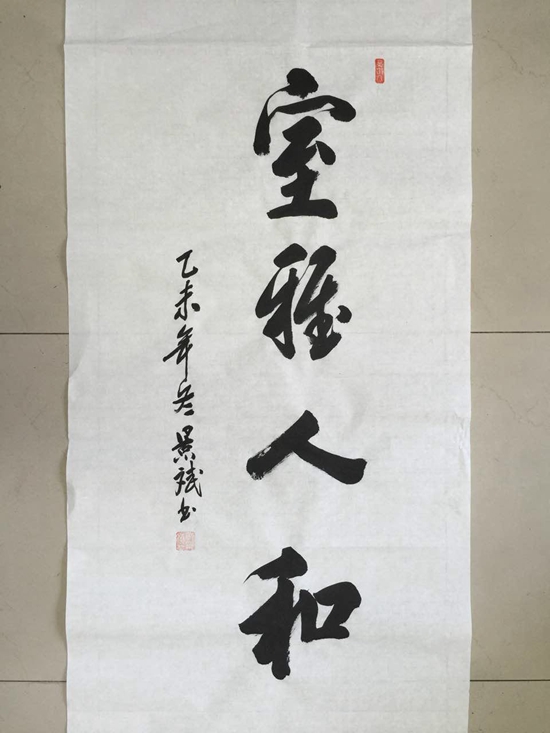 室雅人和
乙未年冬景斌书